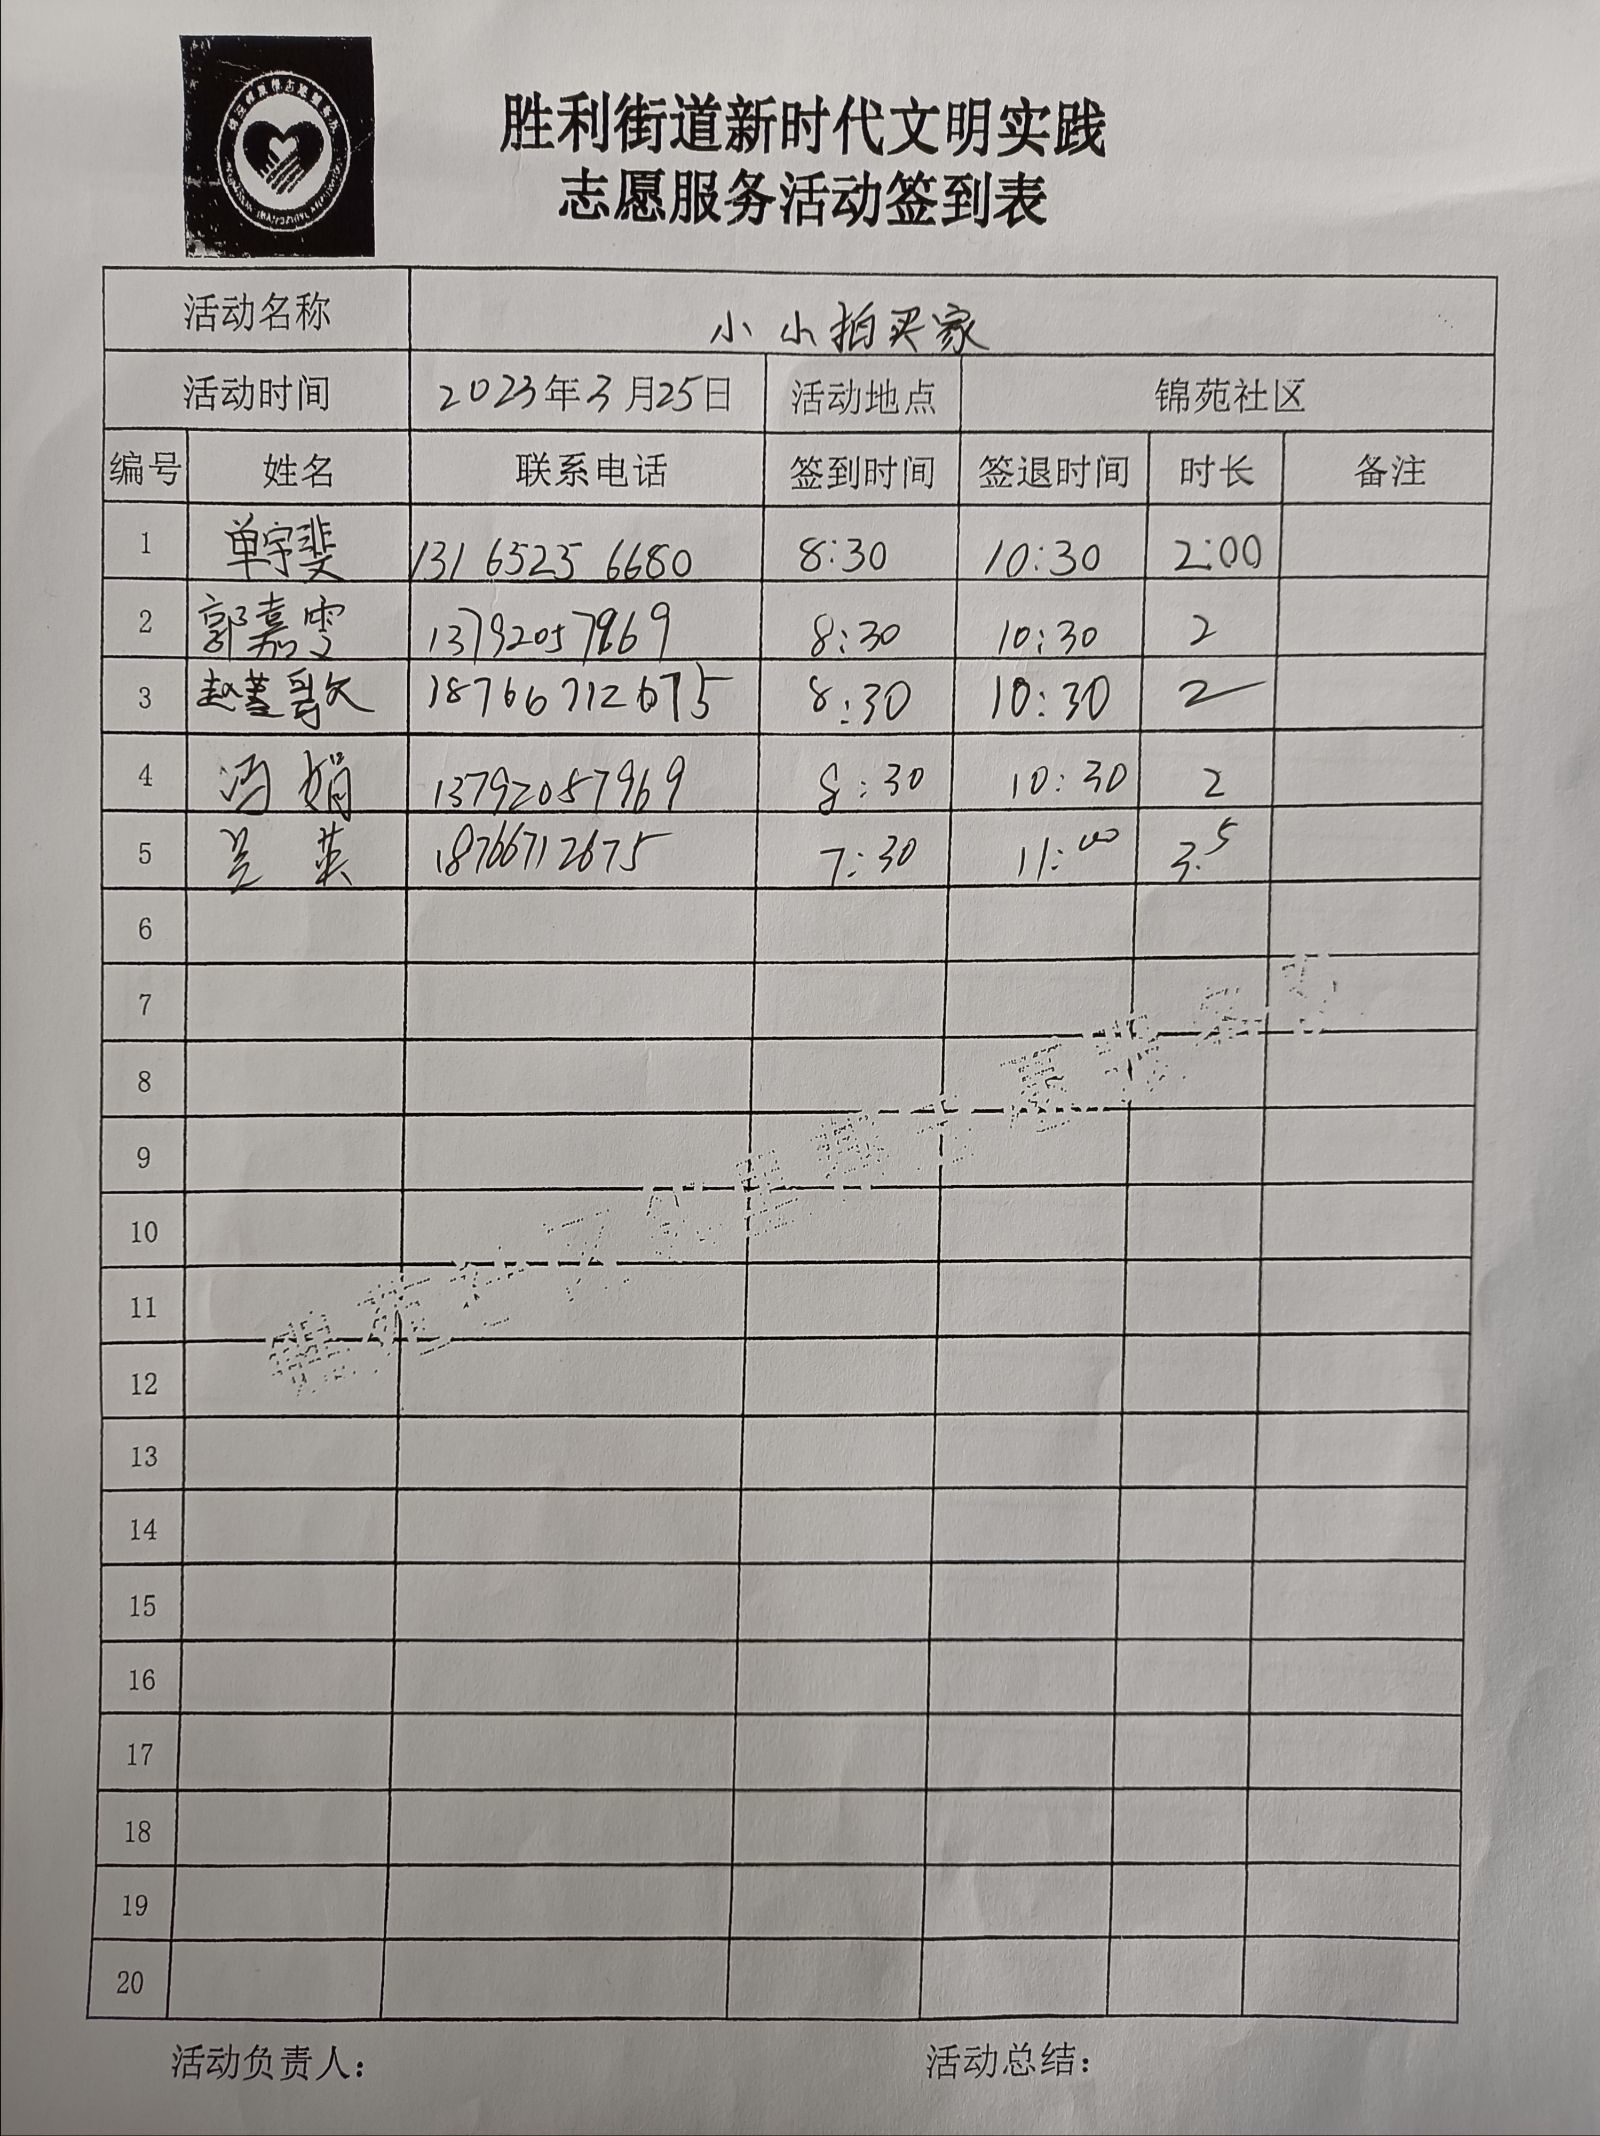 胜利街道新时代文明实践
志愿服务活动签到表
活动名称 小小拍买家
活动时间 2023年3月25日 活动地点 锦苑社区
编号 姓名 联系电话 签到时间 签退时间 时长 备注
1 单宇斐 131 6523 6680 8:30 10:30 2:00
2 郭嘉雯 13792057969 8:30 10:30 2
3 赵 18766712675 8:30 10:30 2
4 冯娟 13792057969 8:30 10:30 2
5 英 18766712675 7:30 11:00 3.5
6
7
8
9
10
11
12
13
14
15
16
17
18
19
20
活动负责人: 活动总结: